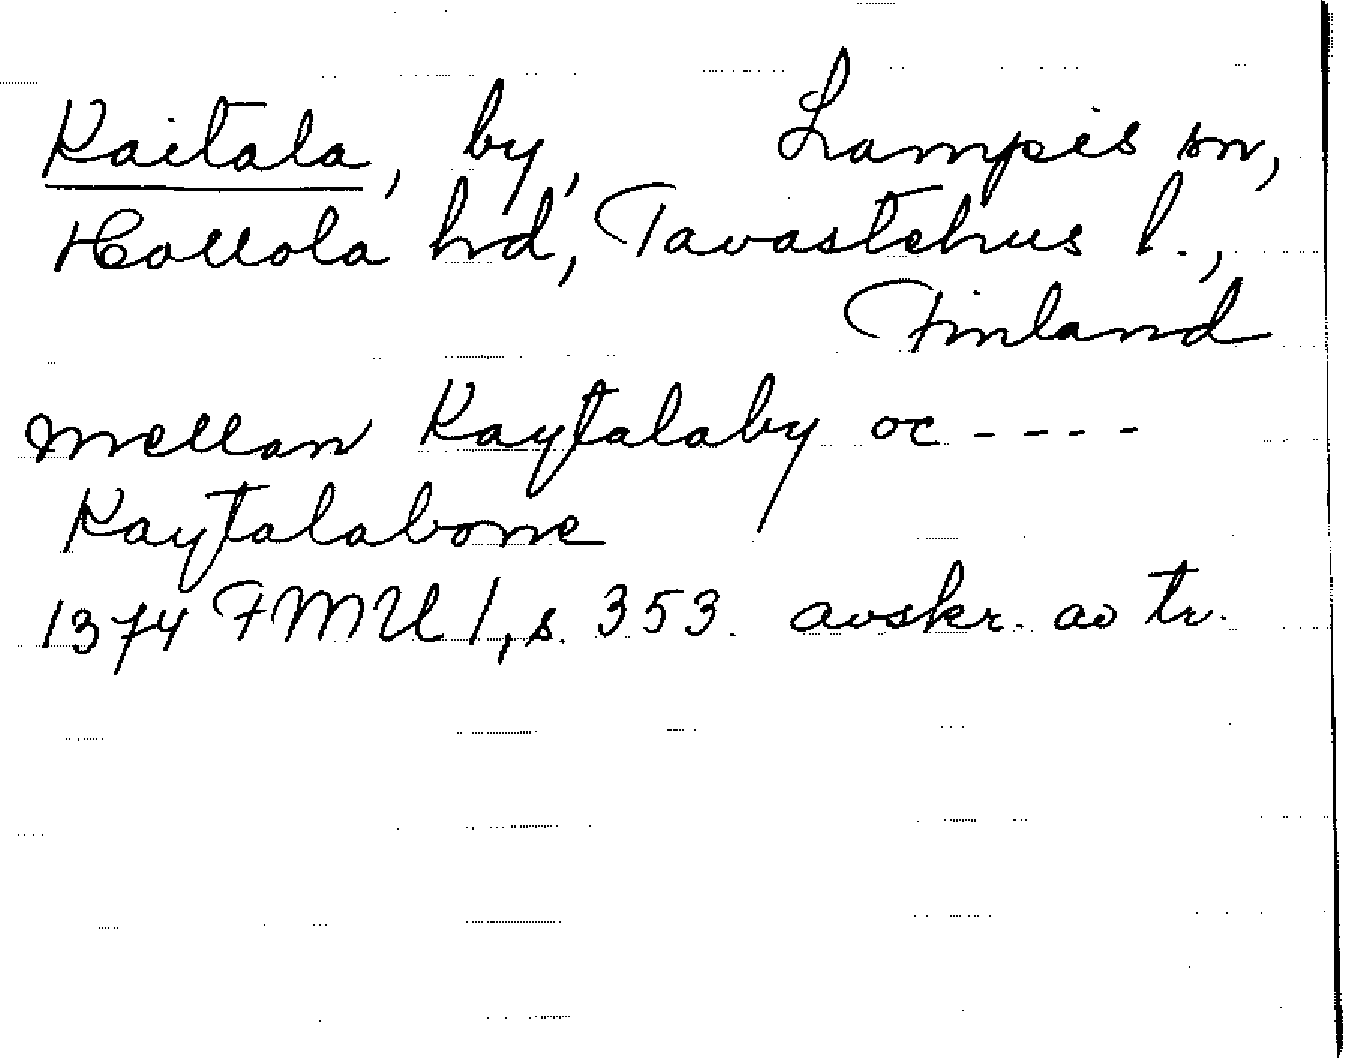 Kaitala, by, Lampis sn,
Hollola hd, Tavastehus l.,
Finland
mellan Kaytalaby oc - - - -
Kaytalabone
1374 FMU 1, s. 353. avskr. av tr.